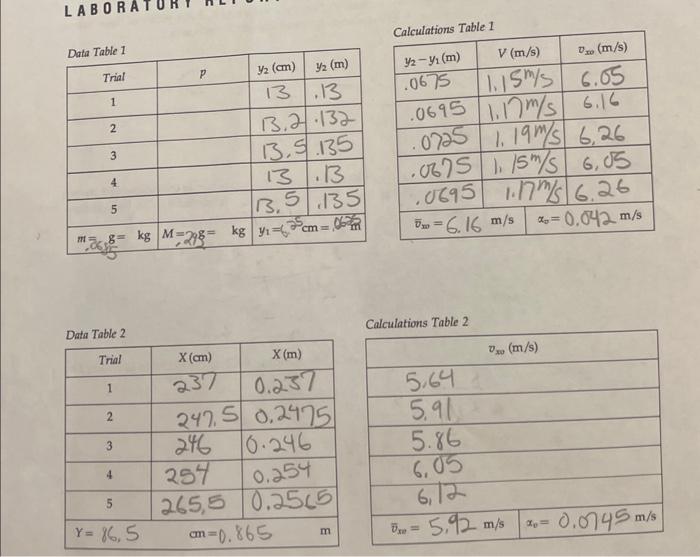 LABORATORY
Calculations Table 1
Data Table 1
Trial p y₂ (cm) y₂ (m)
1 13 .13
2 13.2 .132
3 13.5 .135
4 13 .13
5 13.5 .135
g = kg M = g = kg y₁ = 6.25 cm = m
y₂ – y₁ (m) V (m/s) vₓₒ (m/s)
.0675 1.15m/s 6.05
.0695 1.17m/s 6.16
.0725 1.19m/s 6,26
.0675 1.15m/s 6,05
.0695 1.17m/s 6.26
v̄ₓₒ = 6.16 m/s αₒ = 0.042 m/s
Data Table 2
Trial X (cm) X (m)
1 237 0.237
2 247.5 0.2475
3 246 0.246
4 254 0.254
5 265,5 0.2565
Y = 86.5 cm = 0.865 m
Calculations Table 2
vₓₒ (m/s)
5.64
5.91
5.86
6.05
6,12
v̄ₓₒ = 5.92 m/s αₒ = 0.0745 m/s